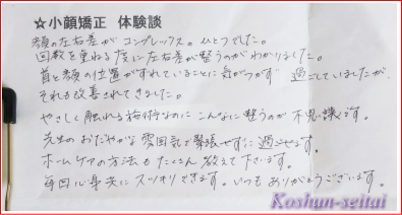 ☆小顔矯正 体験談
顔の左右差がコンプレックスのひとつでした。
回数を重ねる度に左右差が整うのがわかりました。
首と顔の位置がずれていることに気がつかず 過ごしていましたが、
それも改善されてきました。
やさしく触れる施術なのに こんなに整うのが不思議です。
先生のおだやかな雰囲気で緊張せずに過ごせます。
ホームケアの方法もたくさん教えて下さいます。
毎回心身共にスッキリできます。いつもありがとうございます。
Koshun-seitai